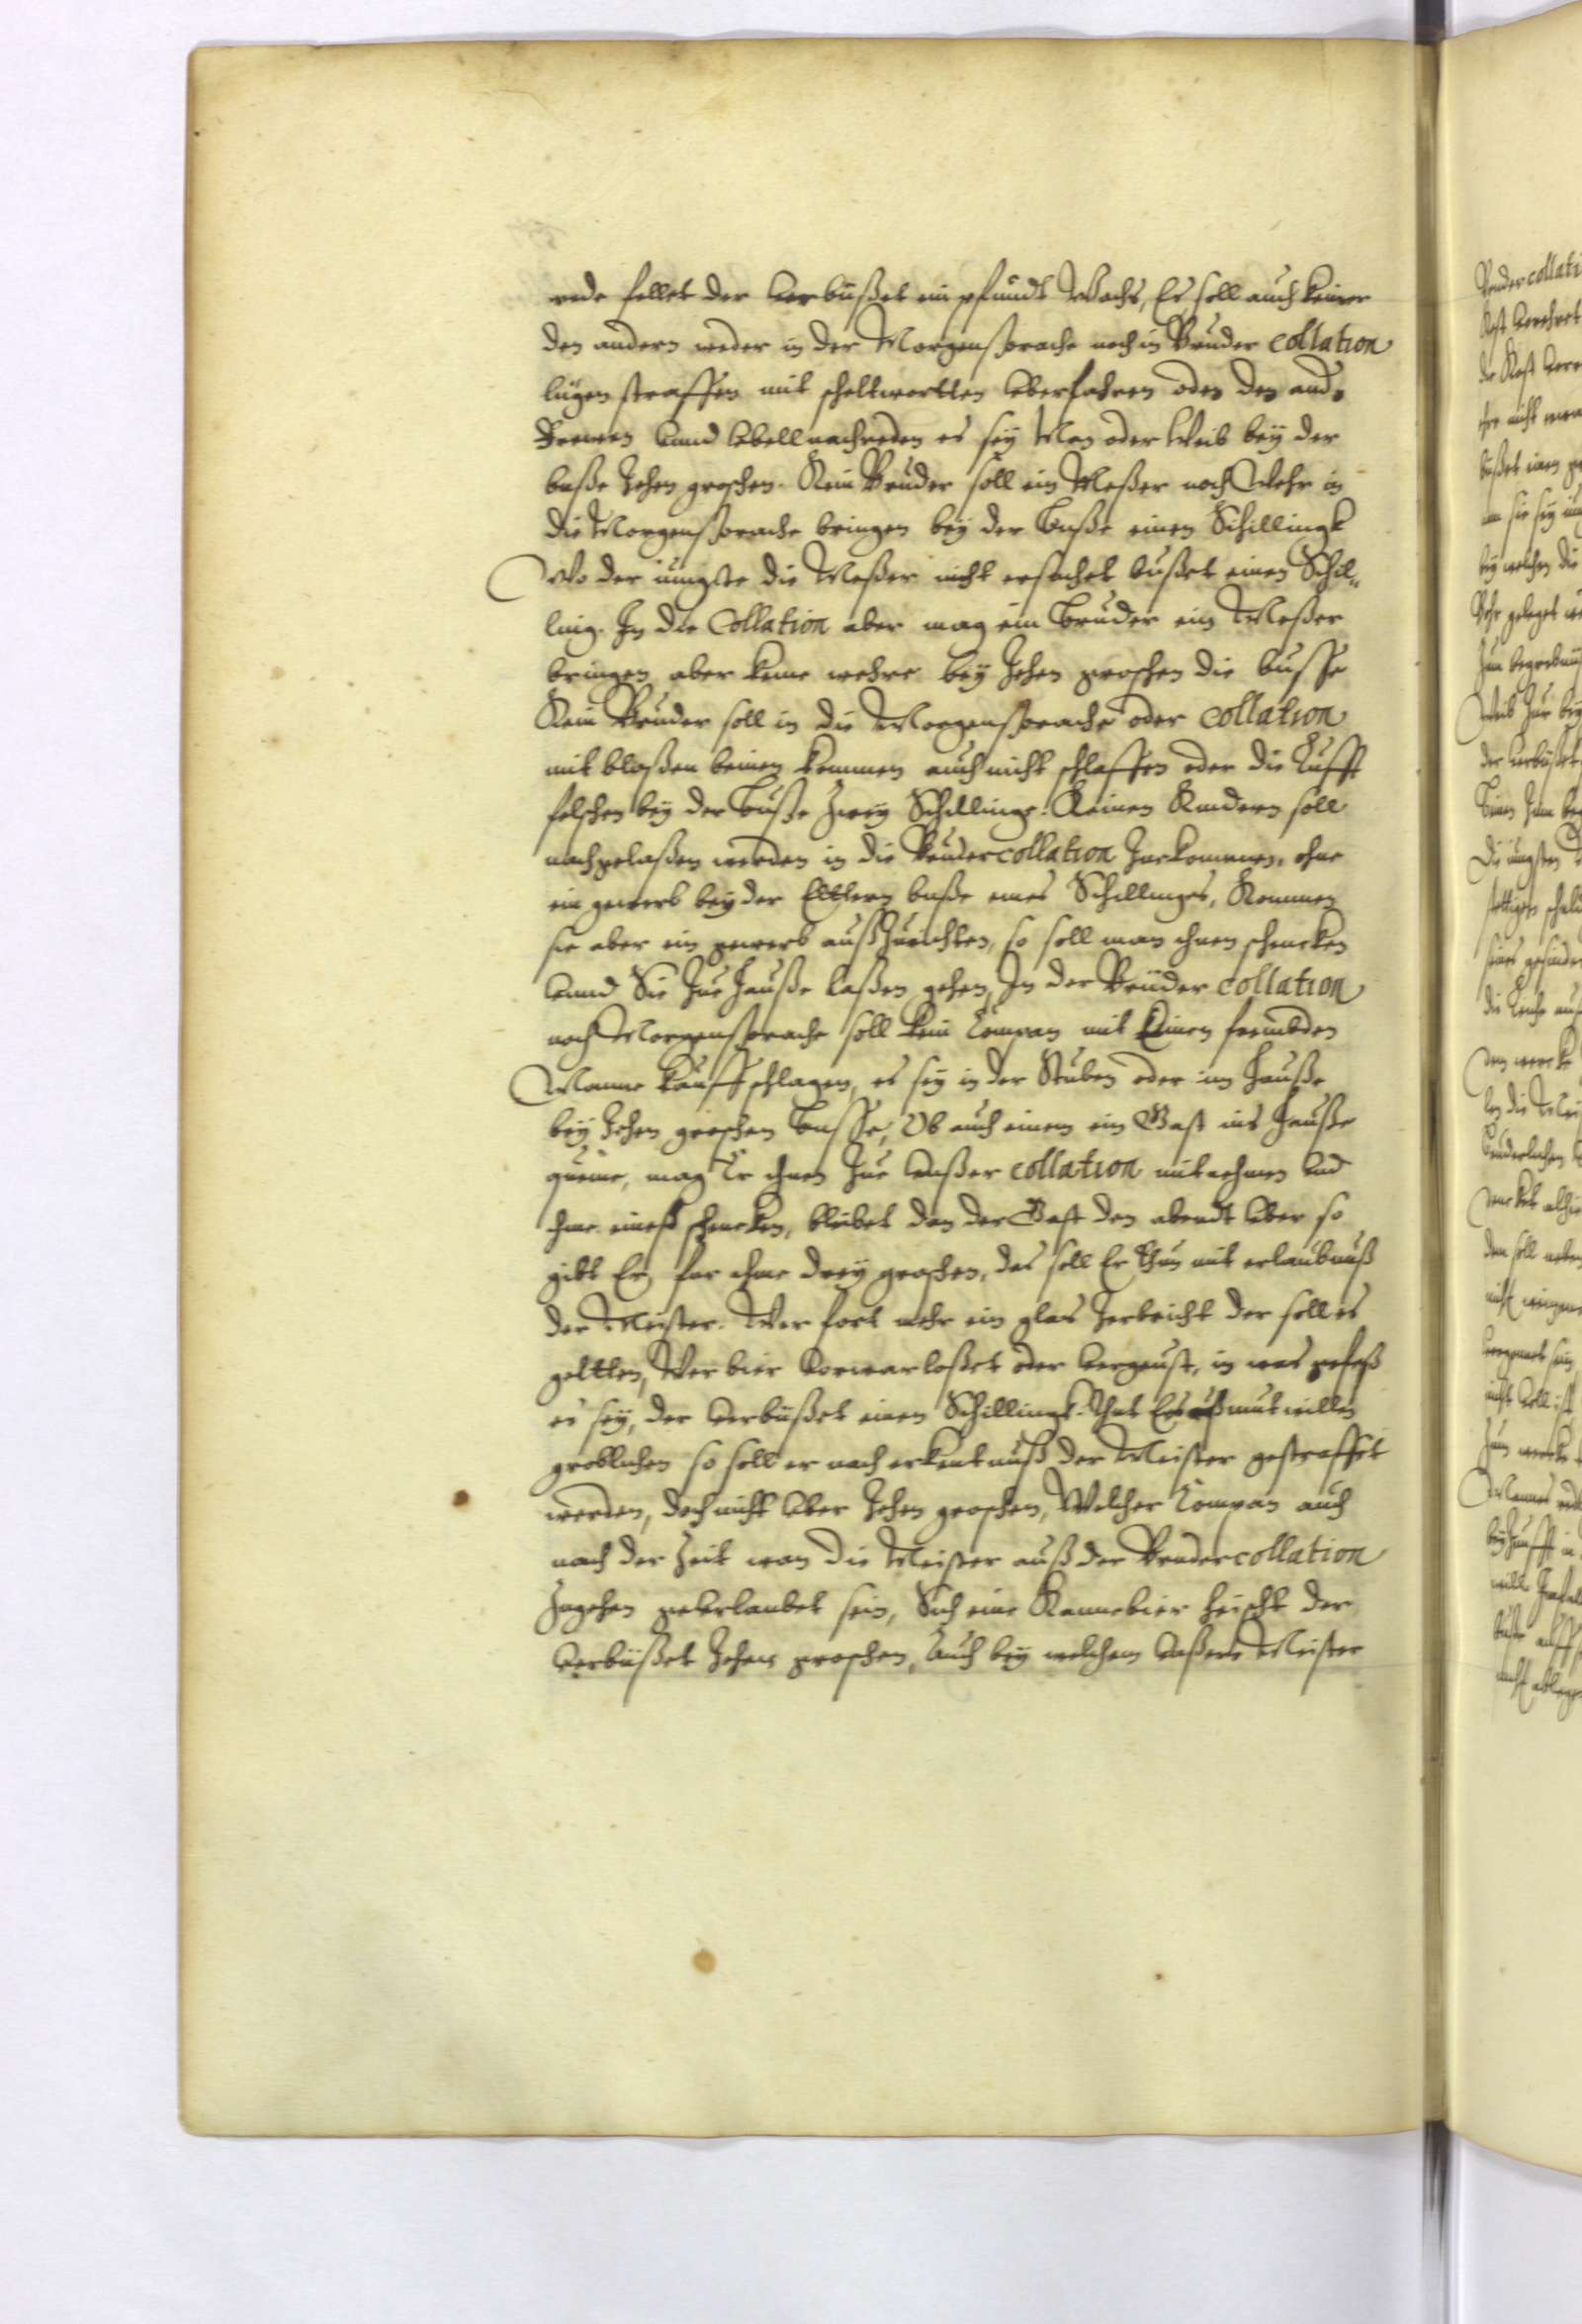 rede fellet der verbüßet ein pfundt Wachs, Es soll auch keiner
den andern weder in der Morgensprache noch in Bruder collation
lügen straffen mit scheltwortten vberfahren oder den and,
vnnd vbell nachreden es seÿ Man oder Weib beÿ der
buße Zehen groschen. Kein Bruder soll ein Meßer noch Wehr in
die Morgensprache bringen beÿ der buße einen Schillingk
Wo der Jüngste die Meßer nicht ersuchet büßet einen Schil„
ling. In die Collation aber mag ein bruder ein Meßer
bringen aber keine wehre beÿ Zehen groschen die busse
Kein Bruder soll in die Morgensprache oder collation
mit bloßen beinen kommen auch nicht schlaffen oder die Lufft
felschen beÿ der buße Zweÿ Schillinge. Keinen Kindern soll
nachgelaßen werden in die Brudercollation Zuekommen, ohne
ein gewerb beÿ der Elltern buße eines Schillinges, Kommen
sie aber ein gewerb außZurichten, so soll man ihnen schencken
vnnd Sie Zue Hauße laßen gehen, In der Brüder collation
noch Morgensprache soll kein Compan mit Einen frembden
Manne kauffschlagen, es seÿ in der Stuben oder im Hauße
beÿ Zehen groschen busse, Ob auch einem ein Gast ins Hauße
queme, mag Er ihnen Zue vnßer collation mitnehmen vnd
ihme einest schencken, bleibet dan der Gast den abendt vber so
gibt Er for ihme dreÿ groschen, das soll Er thun mit erlaubnuß
der Meister. Wer fort mehr ein glas Zerbricht der soll es
geltten, Wer bier vorwarloßet oder vergeust, in was gefeß
es seÿ, der verbüßet einen Schillingk. Thut Er es auß mutwillen
groblichen so soll er nach erkentnuß der Meister gestraffet
werden, doch nicht vber Zehen groschen, Welcher Compan auch
nach der Zeit wan die Meister auß der Brudercollation
Zugehen geVrlaubet sein, Sich eine Kanne bier heischt der
verbüßet Zehen groschen, Auch beÿ welchem vnßern Meister